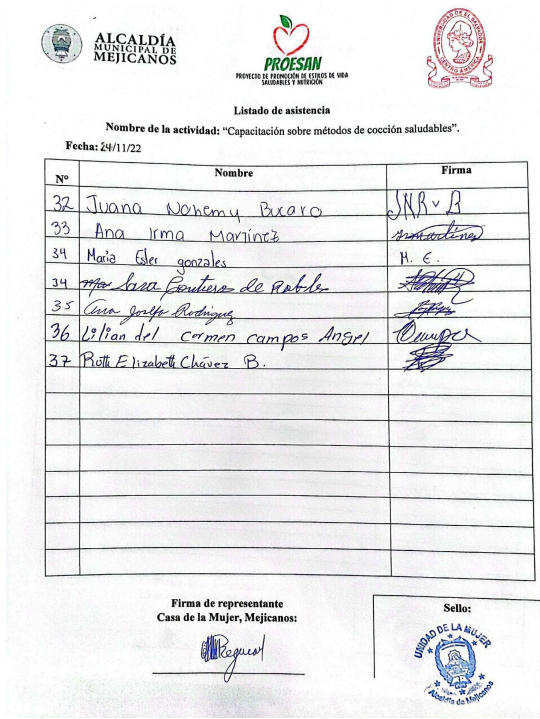 ALCALDÍA
MUNICIPAL DE
MEJICANOS
PROESAN
PROYECTO DE PROMOCIÓN DE ESTILOS DE VIDA
SALUDABLES Y NUTRICIÓN
UNIVERSIDAD DE EL SALVADOR
CENTRO AMERICA
Listado de asistencia
Nombre de la actividad: “Capacitación sobre métodos de cocción saludables”.
Fecha: 24/11/22
Nº Nombre Firma
32 Juana Nohemy Bucaro JNRvB
33 Ana Irma Martinez
34 Maria Ester gonzales M. E.
34 Sara de Robles
35 Ana Rodriguez
36 Lilian del carmen campos Angel
37 Ruth Elizabeth Chávez B.
Firma de representante
Casa de la Mujer, Mejicanos:
Sello:
UNIDAD DE LA MUJER
Alcaldía de Mejicanos